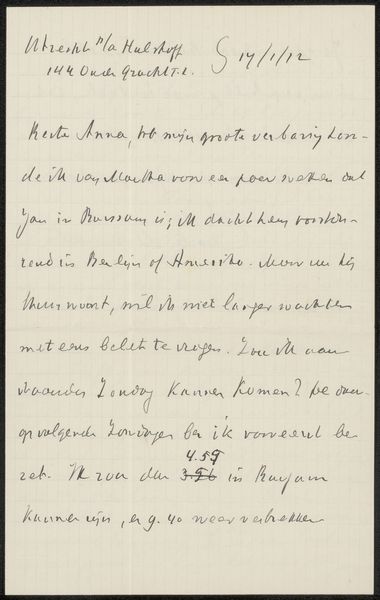 Utrecht p/a Hulshoff
144 Oude Gracht T.Z.
17/1/12
Beste Anna, tot mijn groote verbazing hoor-
de ik van Martha voor een paar weken dat
Jan in Bussum is; ik dacht hem voortdu-
rend in Berlijn of Amerika. Maar nu hij
thuis woont, wil ik niet langer wachten
met eens belet te vragen. Zou ik aan
staande Zondag kunnen komen? De daar-
opvolgende Zondagen ben ik voorloopig be
zet. Ik zou dan 4.59 in Bussum
kunnen zijn, en 9.40 weer vertrekken